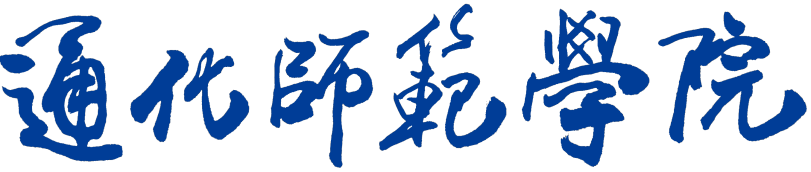 通化師範學院